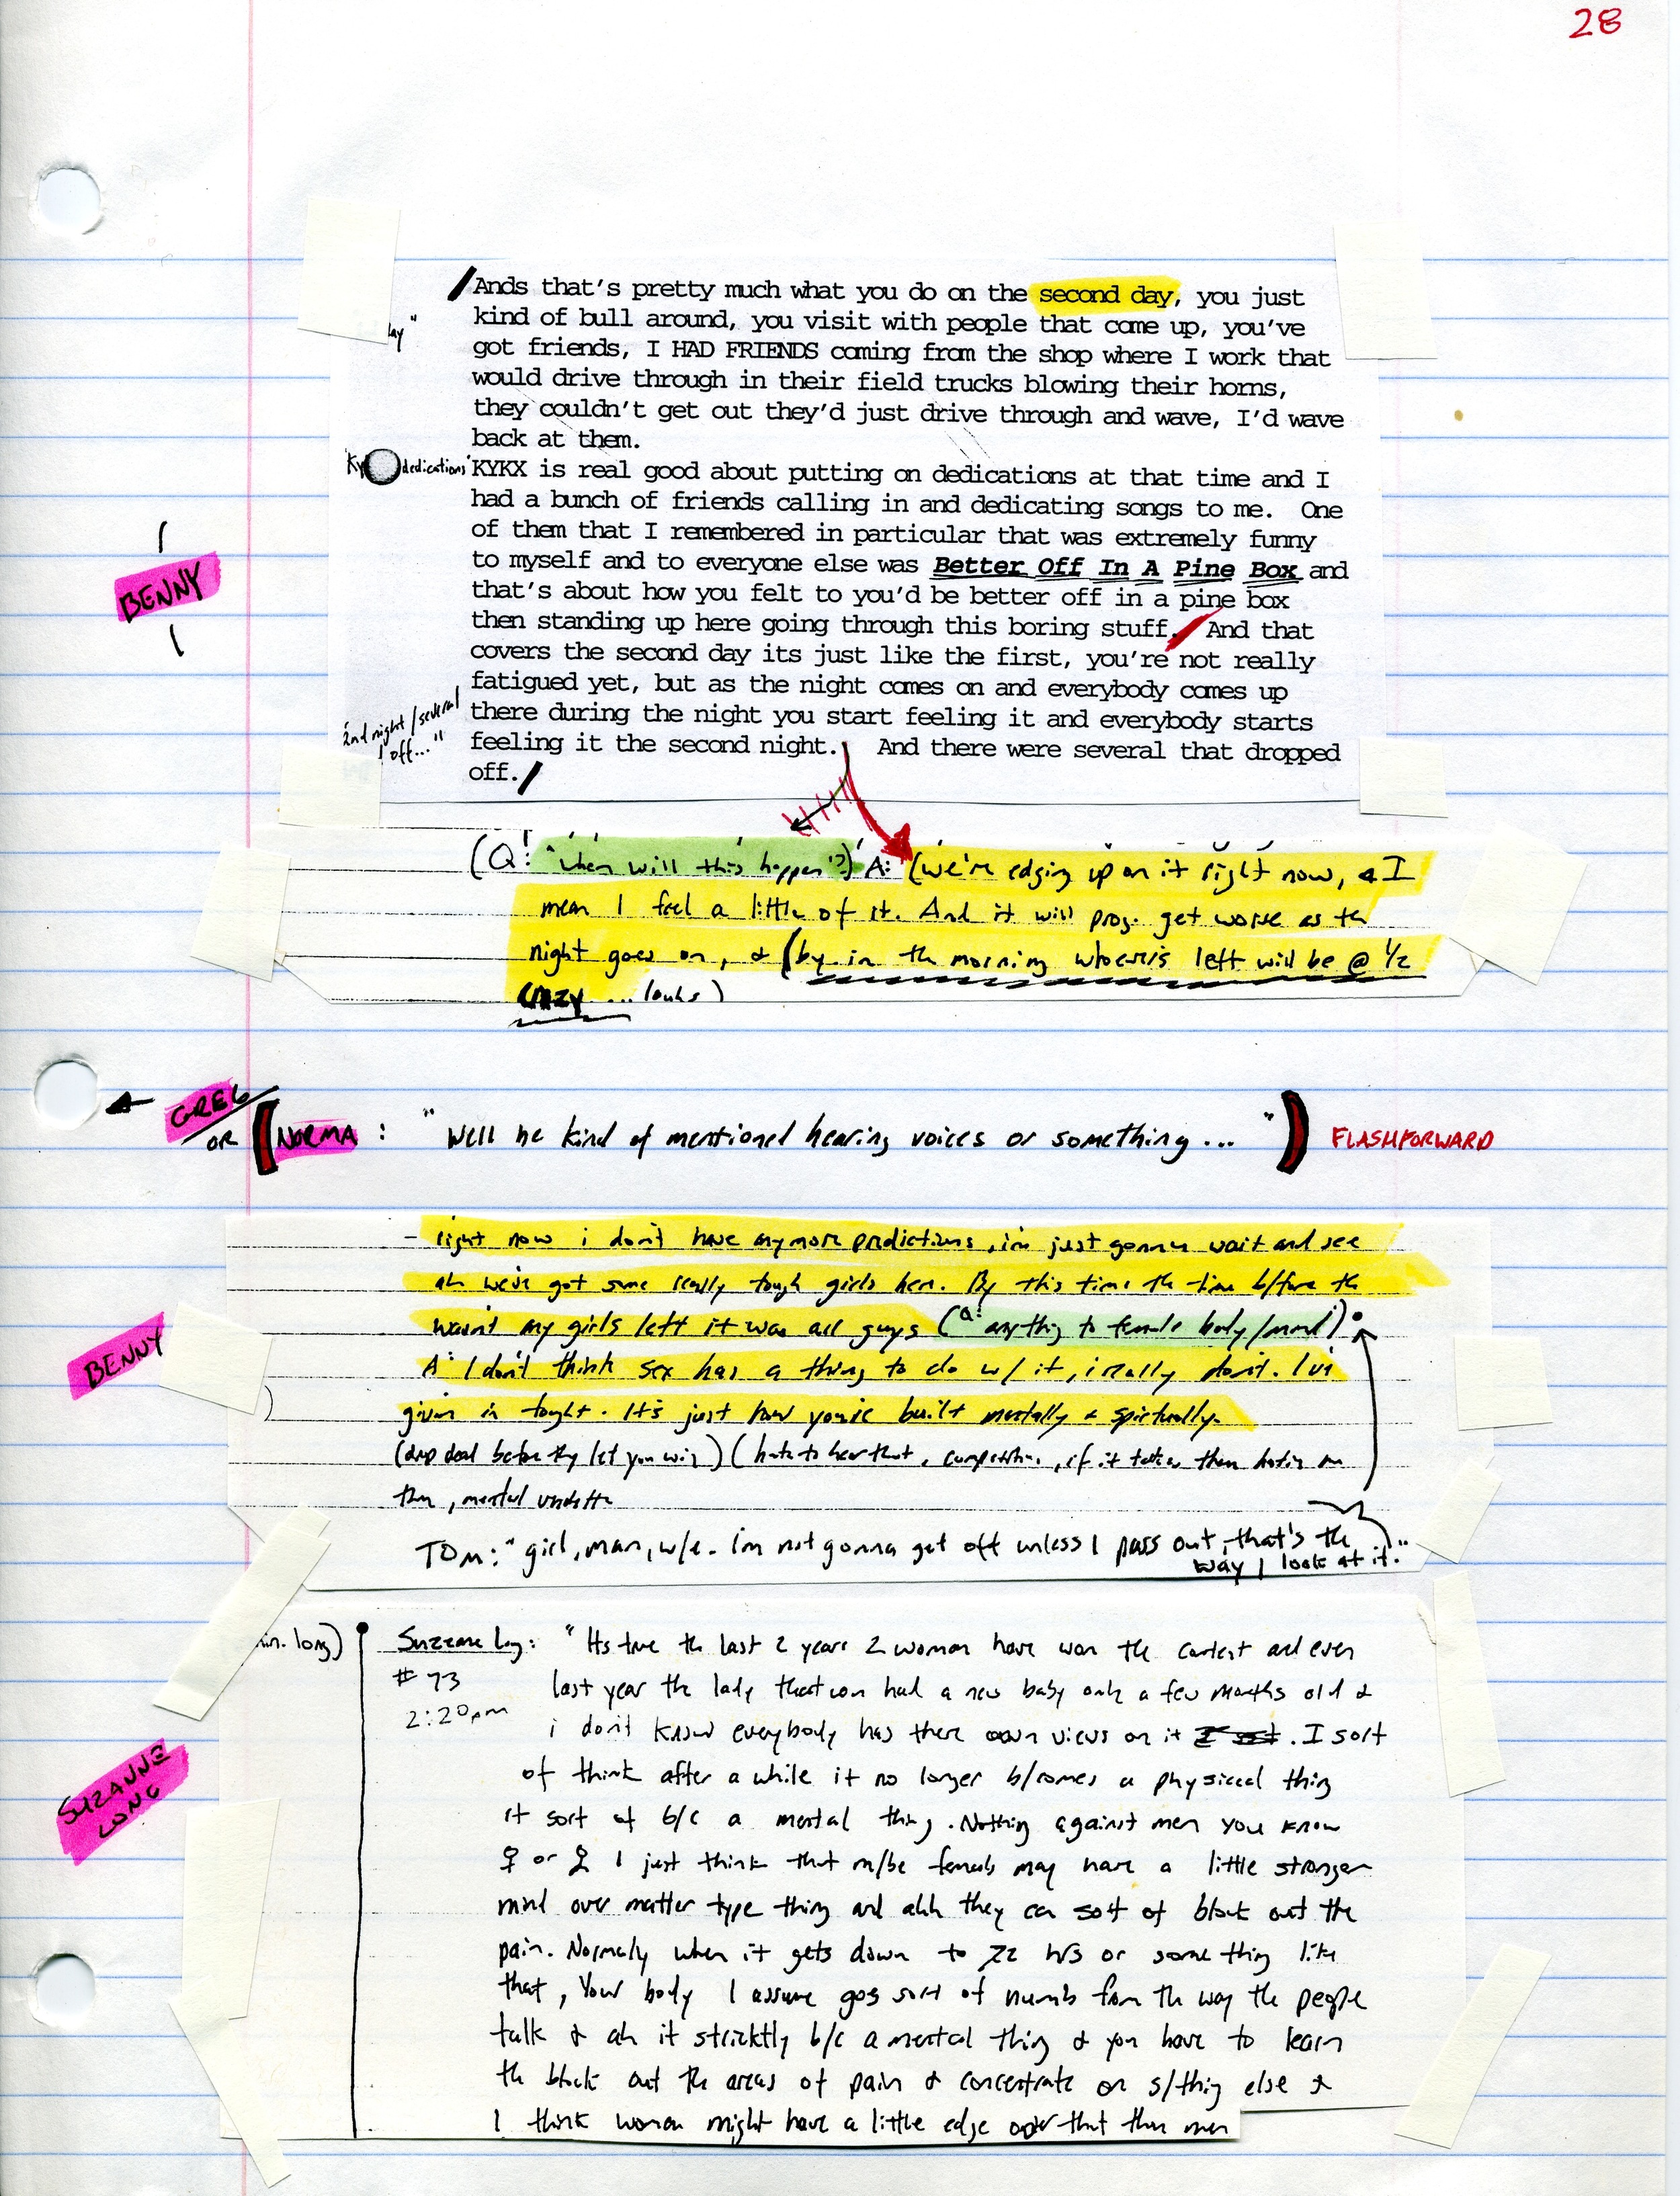 28
Ands that's pretty much what you do on the second day, you just
kind of bull around, you visit with people that come up, you've
ay"
got friends, I HAD FRIENDS coming from the shop where I work that
would drive through in their field trucks blowing their horns,
they couldn't get out they'd just drive through and wave, I'd wave
back at them.
dedications
KYKX is real good about putting on dedications at that time and I
had a bunch of friends calling in and dedicating songs to me. One
of them that I remembered in particular that was extremely funny
to myself and to everyone else was Better Off In A Pine Box and
BENNY
that's about how you felt to you'd be better off in a pine box
then standing up here going through this boring stuff. And that
covers the second day its just like the first, you're not really
fatigued yet, but as the night comes on and everybody comes up
there during the night you start feeling it and everybody starts
2nd night/several
off..."
feeling it the second night. And there were several that dropped
off.
(Q: "when will this happen"?) A: (we're edging up on it right now, & I
mean I feel a little of it. And it will prog. get worse as th
night goes on, & (by in th morning whoever's left will be @ 1/2
crazy ... looks)
GREG
OR (NORMA: "Well he kind of mentioned hearing voices or something... ") FLASHFORWARD
- right now i don't have anymore predictions, i'm just gonna wait and see
ah we've got some really tough girls here. By this time th time b/fore the
wasn't any girls left it was all guys (Q: anything to female body/mind)
BENNY
A: I don't think sex has a thing to do w/ it, i really don't. I
given it. It's just how you're built mentally & spiritually.
(drop dead before they let you win) (hate to hear that, competition, if it takes them hating me
then, mental vendetta
TOM: "girl, man, w/e. I'm not gonna get off unless I pass out, that's the
way I look at it."
in. long)
Suzanne Long: "Its true th last 2 years 2 woman have won the contest and even
#73
last year the lady that won had a new baby only a few months old &
2:20pm
i don't know everybody has there own views on it. I sort
of think after a while it no longer b/comes a physical thing
SUZANNE
LONG
it sort of b/c a mental thing. Nothing against men you know
♀ or ♀ I just think that m/be females may have a little stronger
mind over matter type thing and ahh they can sort of block out the
pain. Normaly when it gets down to 72 hrs or some thing like
that, Your body I assume goes sort of numb from th way the people
talk & ah it stricktly b/c a mental thing & you have to learn
th block out the areas of pain & concentrate on s/thing else &
I think woman might have a little edge over that than men